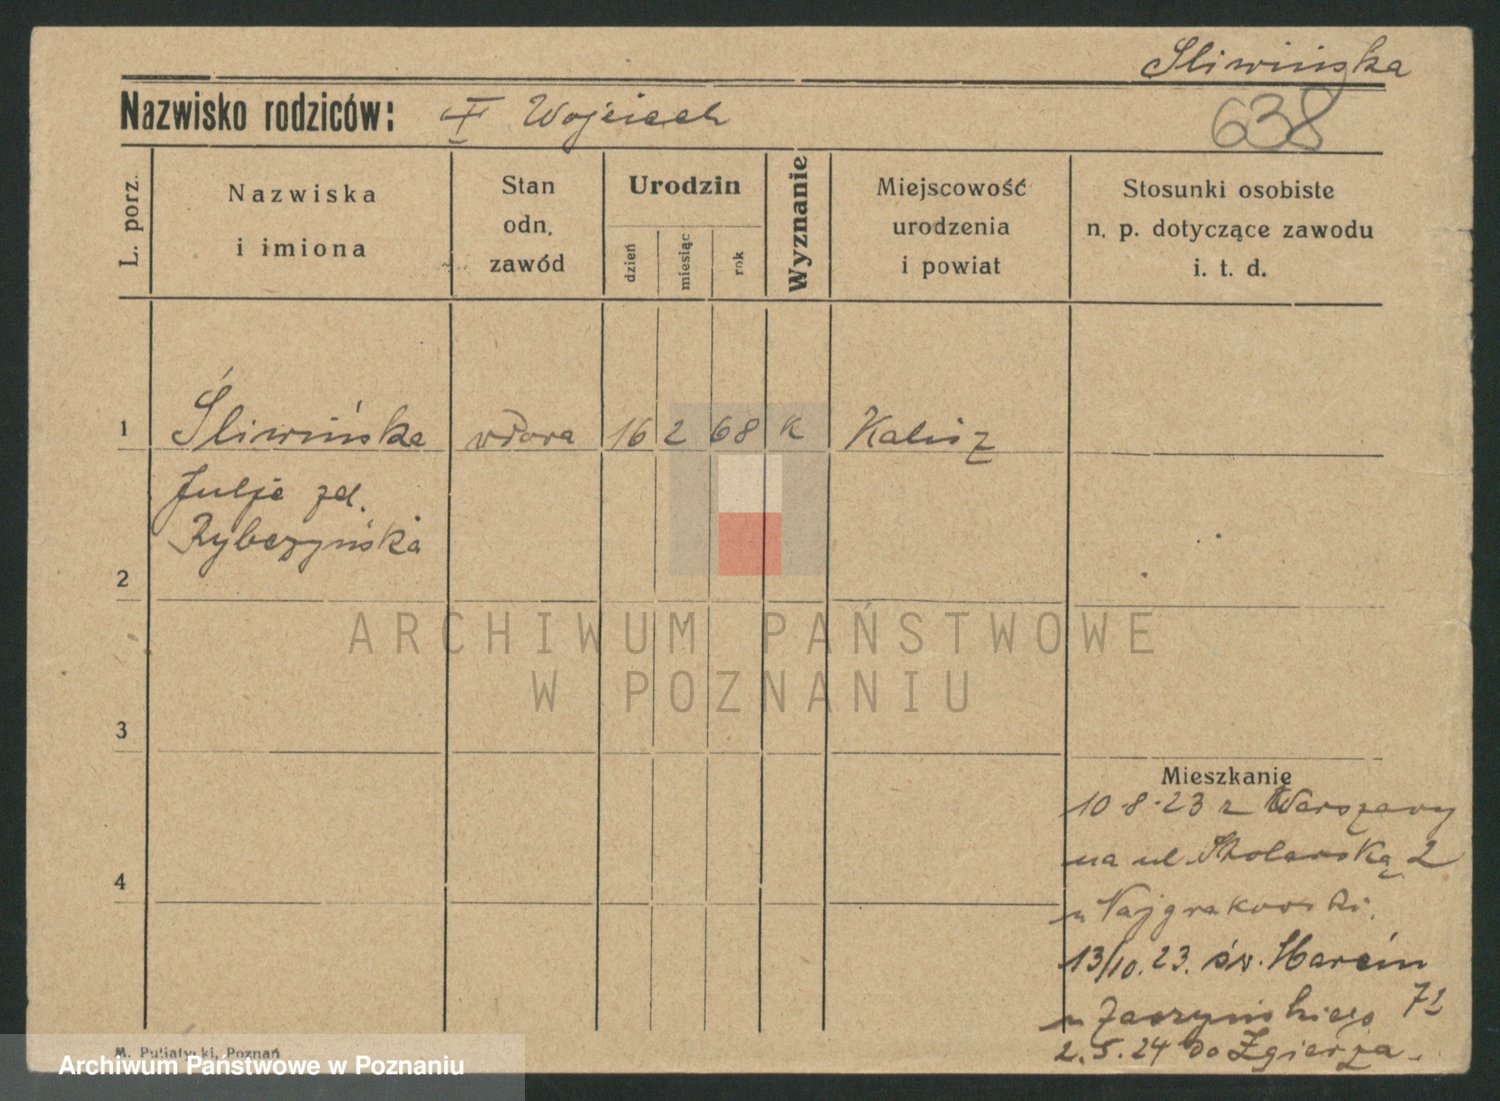 Śliwińska
638
Nazwisko rodziców: Wojciech
L. porz.
Nazwiska
i imiona
Stan
odn.
zawód
Urodzin
dzień
miesiąc
rok
Wyznanie
Miejscowość
urodzenia
i powiat
Stosunki osobiste
n. p. dotyczące zawodu
i. t. d.
1 Śliwińska wdowa 16 2 68 K Kalisz
Julja zd.
Rybczyńska
2
ARCHIWUM PAŃSTWOWE
W POZNANIU
3
4
Mieszkanie
10-8-23 z Warszawy
na ul Stolarską 2
u Najgrakowski.
13/10.23. św. Marcin
u 72
2.5.24 do Zgierza.
M. Putiatycki, Poznań
Archiwum Państwowe w Poznaniu